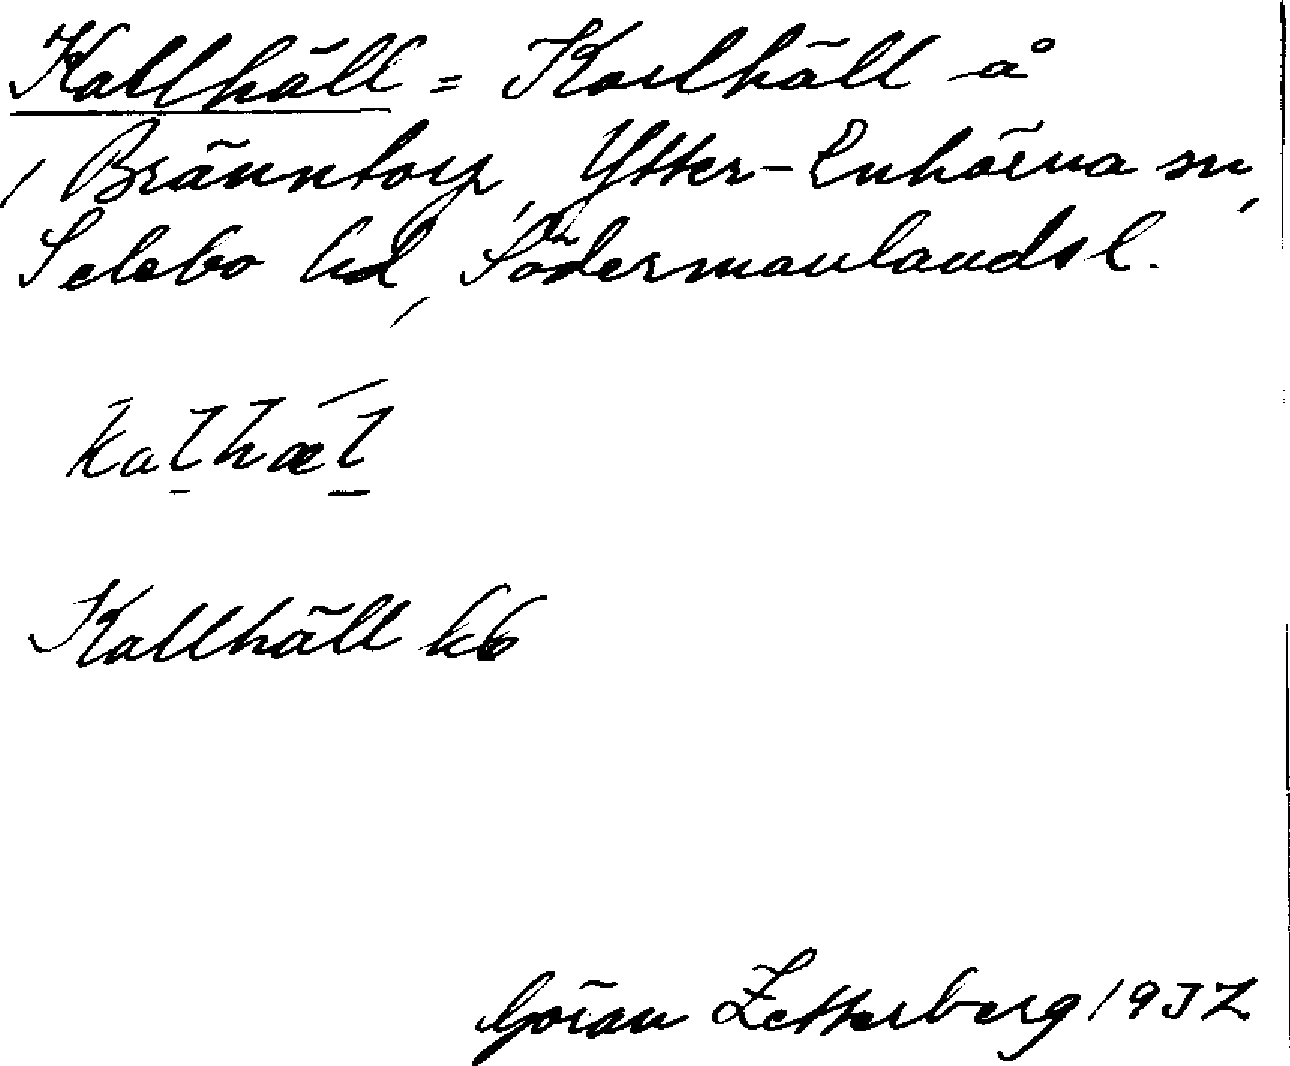 Kallhäll = Karlhäll å
, Bränntorp, Ytter-Enhörna sn,
Selebo hd, Södermanlands l.
kalhæl
Kallhäll kb
Göran Zetterberg 1937